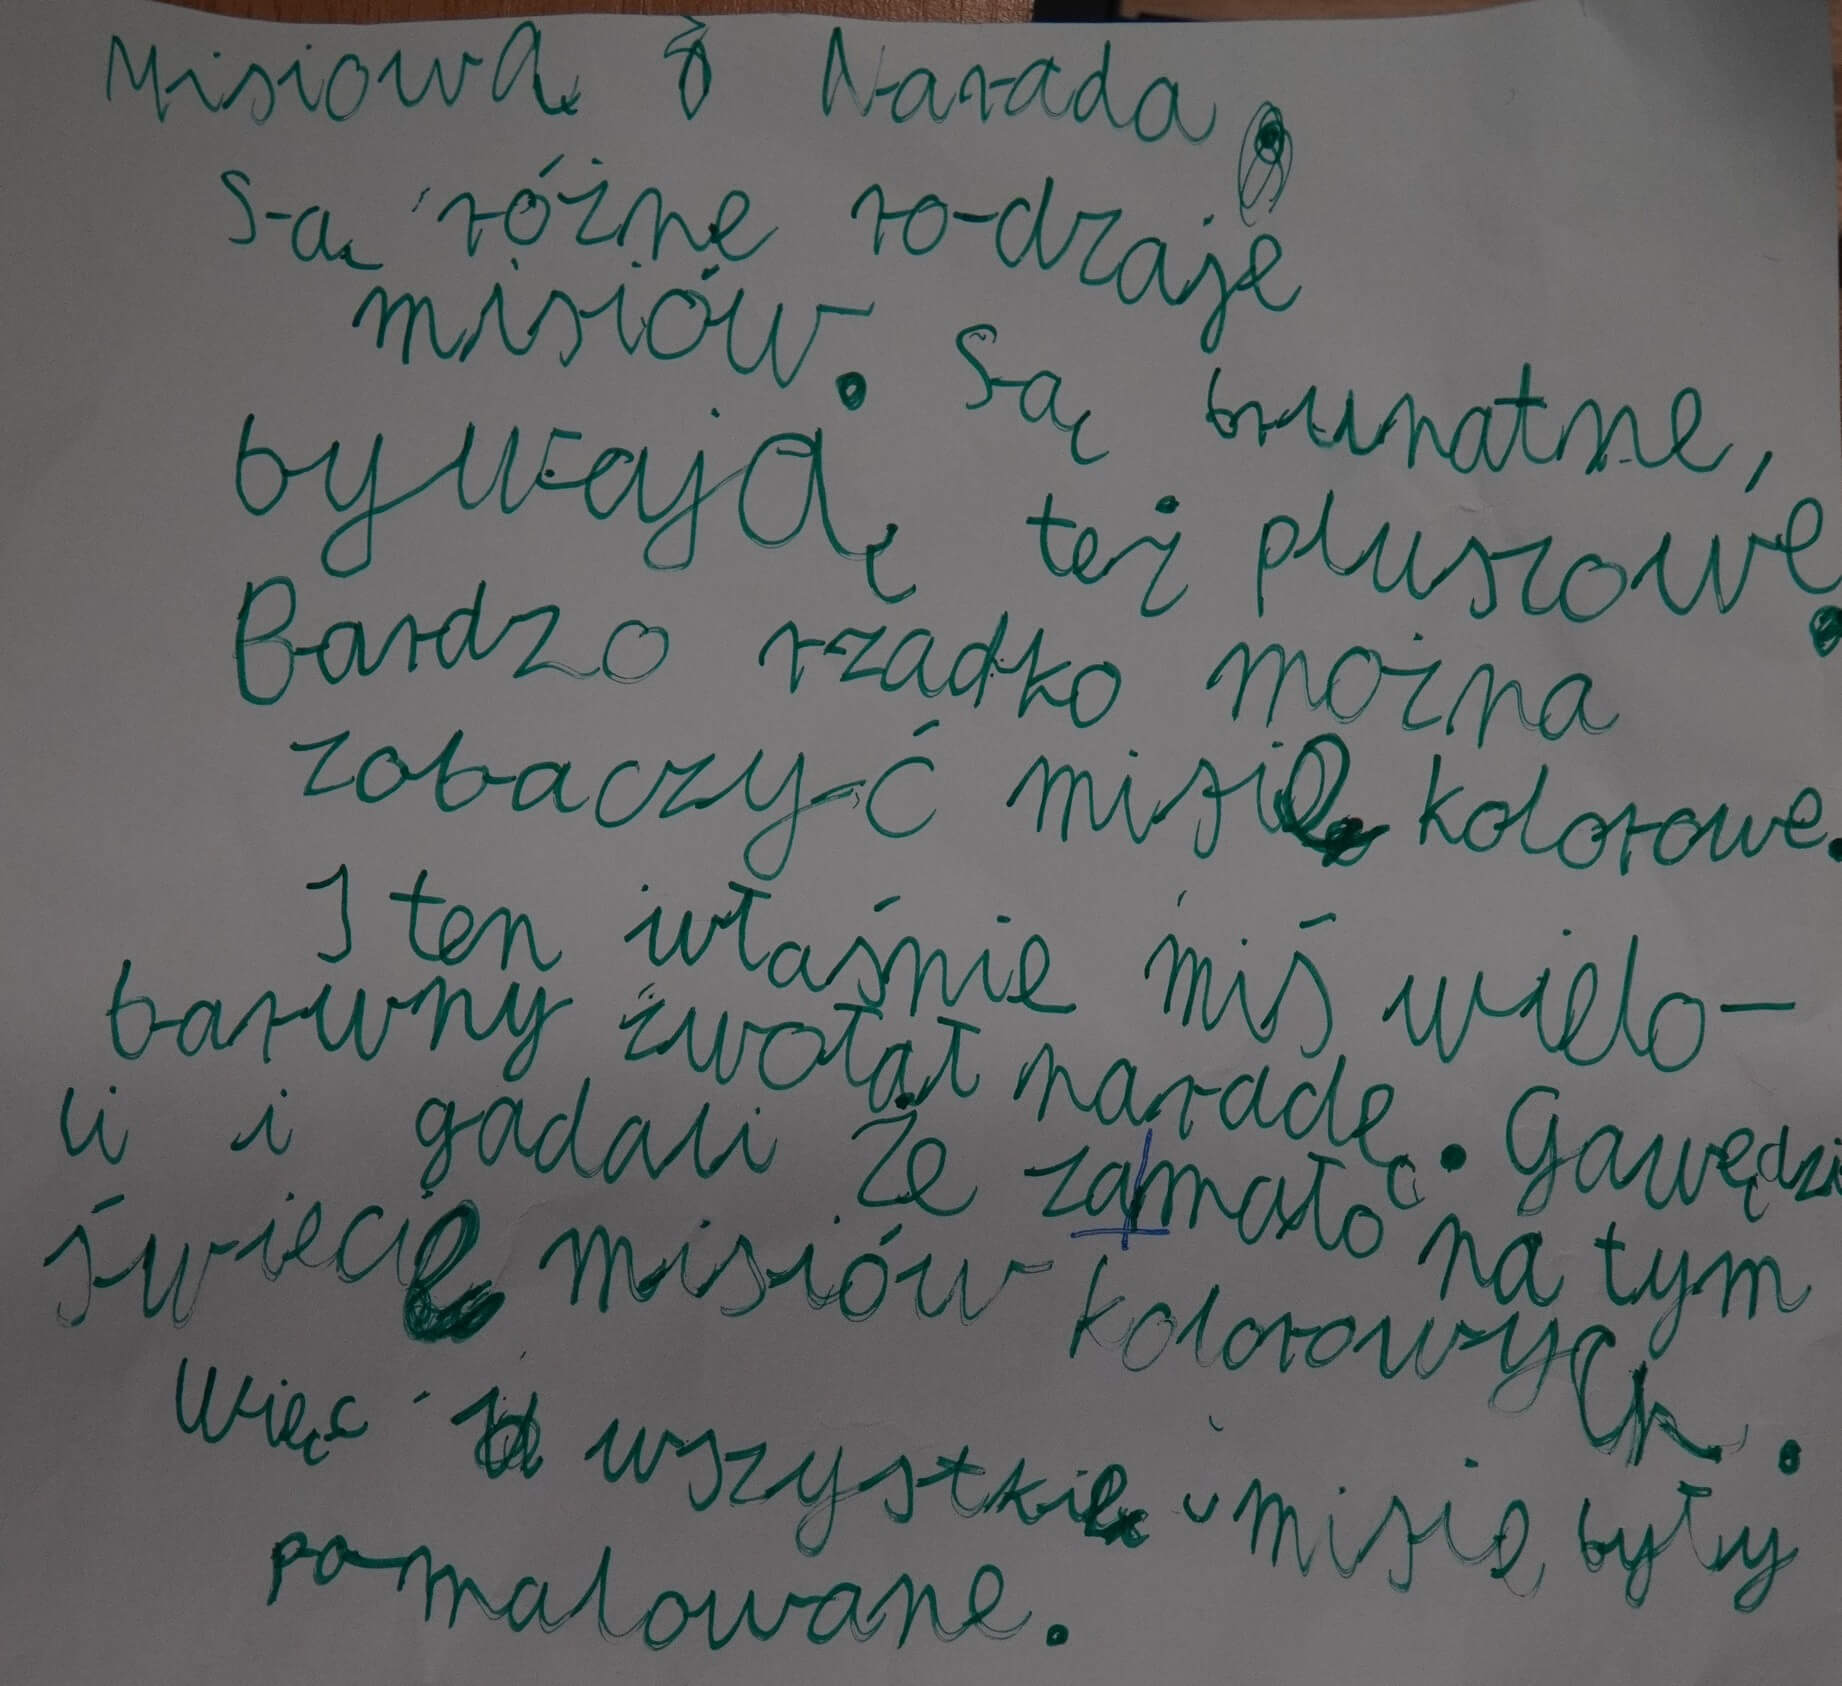 Misiowa Narada.
Są różne rodzaje
misiów. Są brunatne,
bywają też pluszowe.
Bardzo rzadko można
zobaczyć misie kolorowe.
I ten właśnie miś wielo-
barwny zwołał naradę. Gawędzi
li i gadali że za mało na tym
świecie misiów kolorowych.
Więc wszystkie misie były
pomalowane.